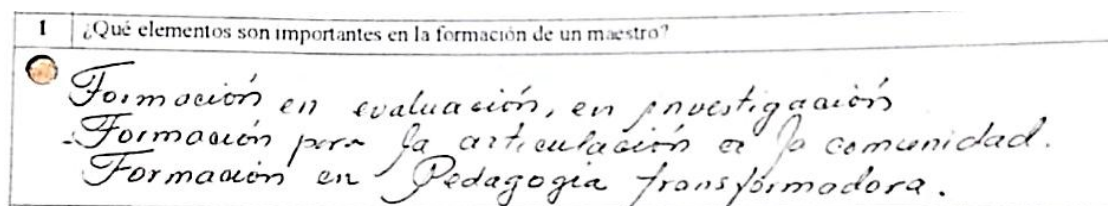 1 ¿Qué elementos son importantes en la formación de un maestro?
Formación en evaluación, en investigación
-Formación para la articulación a la comunidad.
Formación en Pedagogía transformadora.